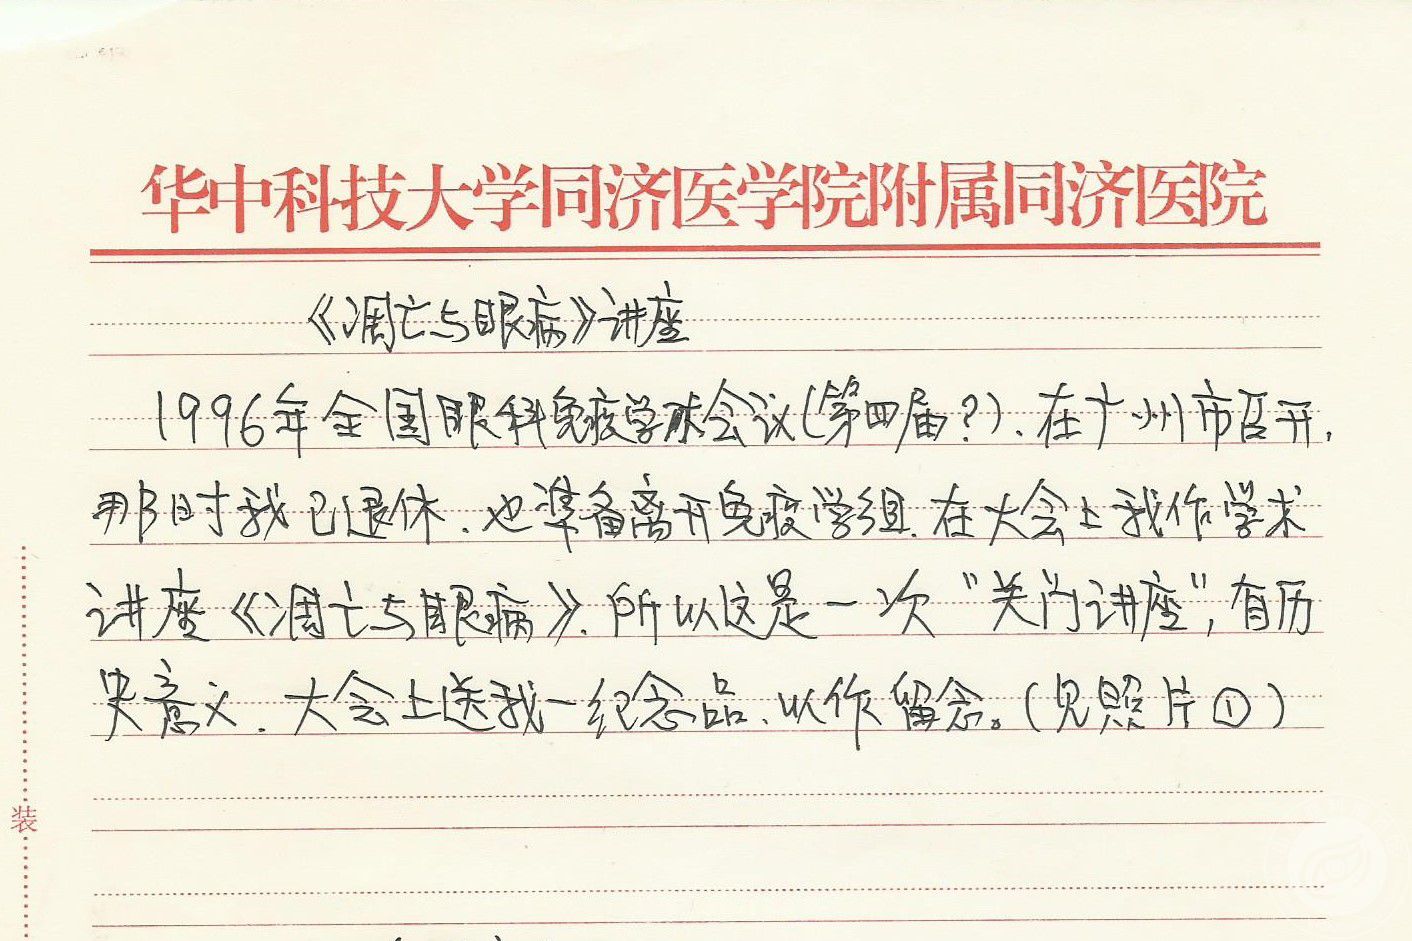 华中科技大学同济医学院附属同济医院
《凋亡与眼病》讲座
1996年全国眼科免疫学术会议(第四届?)、在广州市召开,
那时我已退休、也准备离开免疫学组、在大会上我作学术
讲座《凋亡与眼病》、所以这是一次“关门讲座”,有历
史意义、大会上送我一纪念品、以作留念。(见照片①)
装